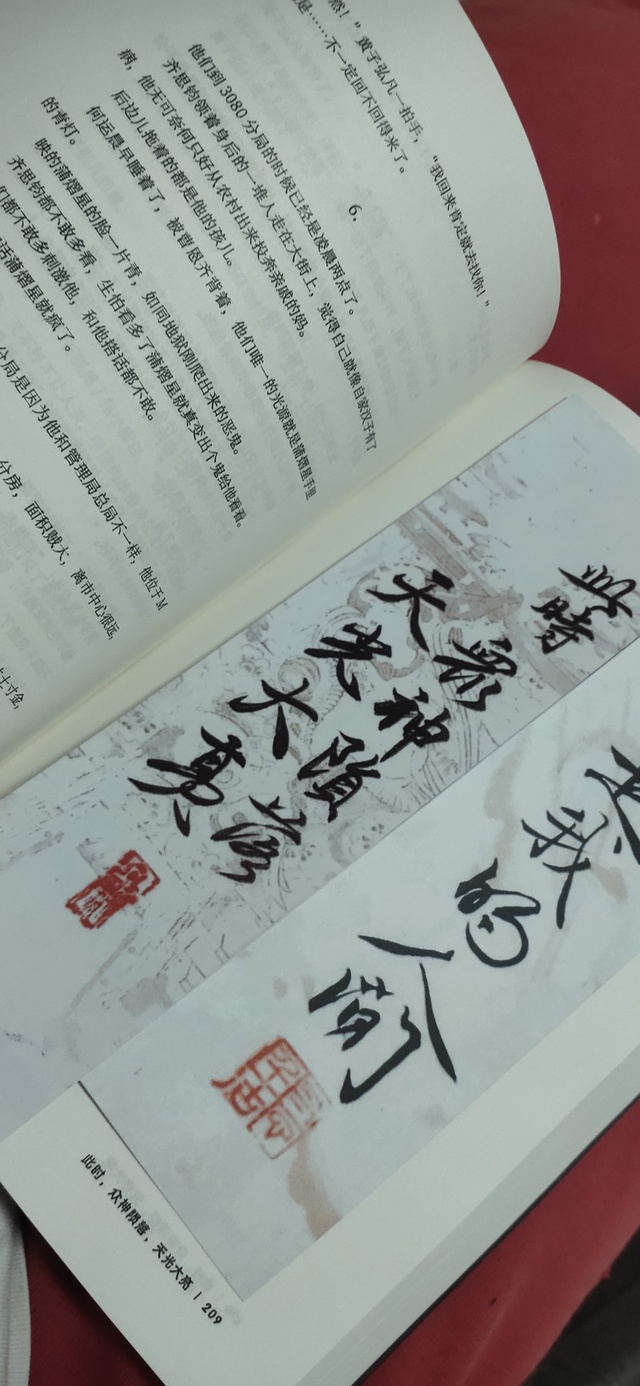 然！”黄子弘凡一拍手，“我回来肯定就去找你！”
是……不一定回不回得来了。
6.
他们到3080分局的时候已经是凌晨两点了。
齐思钧领着身后的一堆人走在大街上，觉得自己就像自家汉子有了
病，他无可奈何只好从农村出来投奔亲戚的妈。
后边儿拖着的都是他的孩儿。
何运晨早睡着了，被曹恩齐背着，他们唯一的光源就是蒲熠星手里
的背灯。
映的蒲熠星的脸一片青，如同地狱刚爬出来的恶鬼。
齐思钧都不敢多看，生怕看多了蒲熠星就真变出个鬼给他看看。
们都不敢多刺激他，和他搭话都不敢。
话蒲熠星就疯了。
分局是因为他和管理局总局不一样，他位于M
分房，面积贼大，离市中心很远，
土寸金，
此時
眾神隕落
天光大亮
我的
此时，众神陨落，天光大亮 | 209